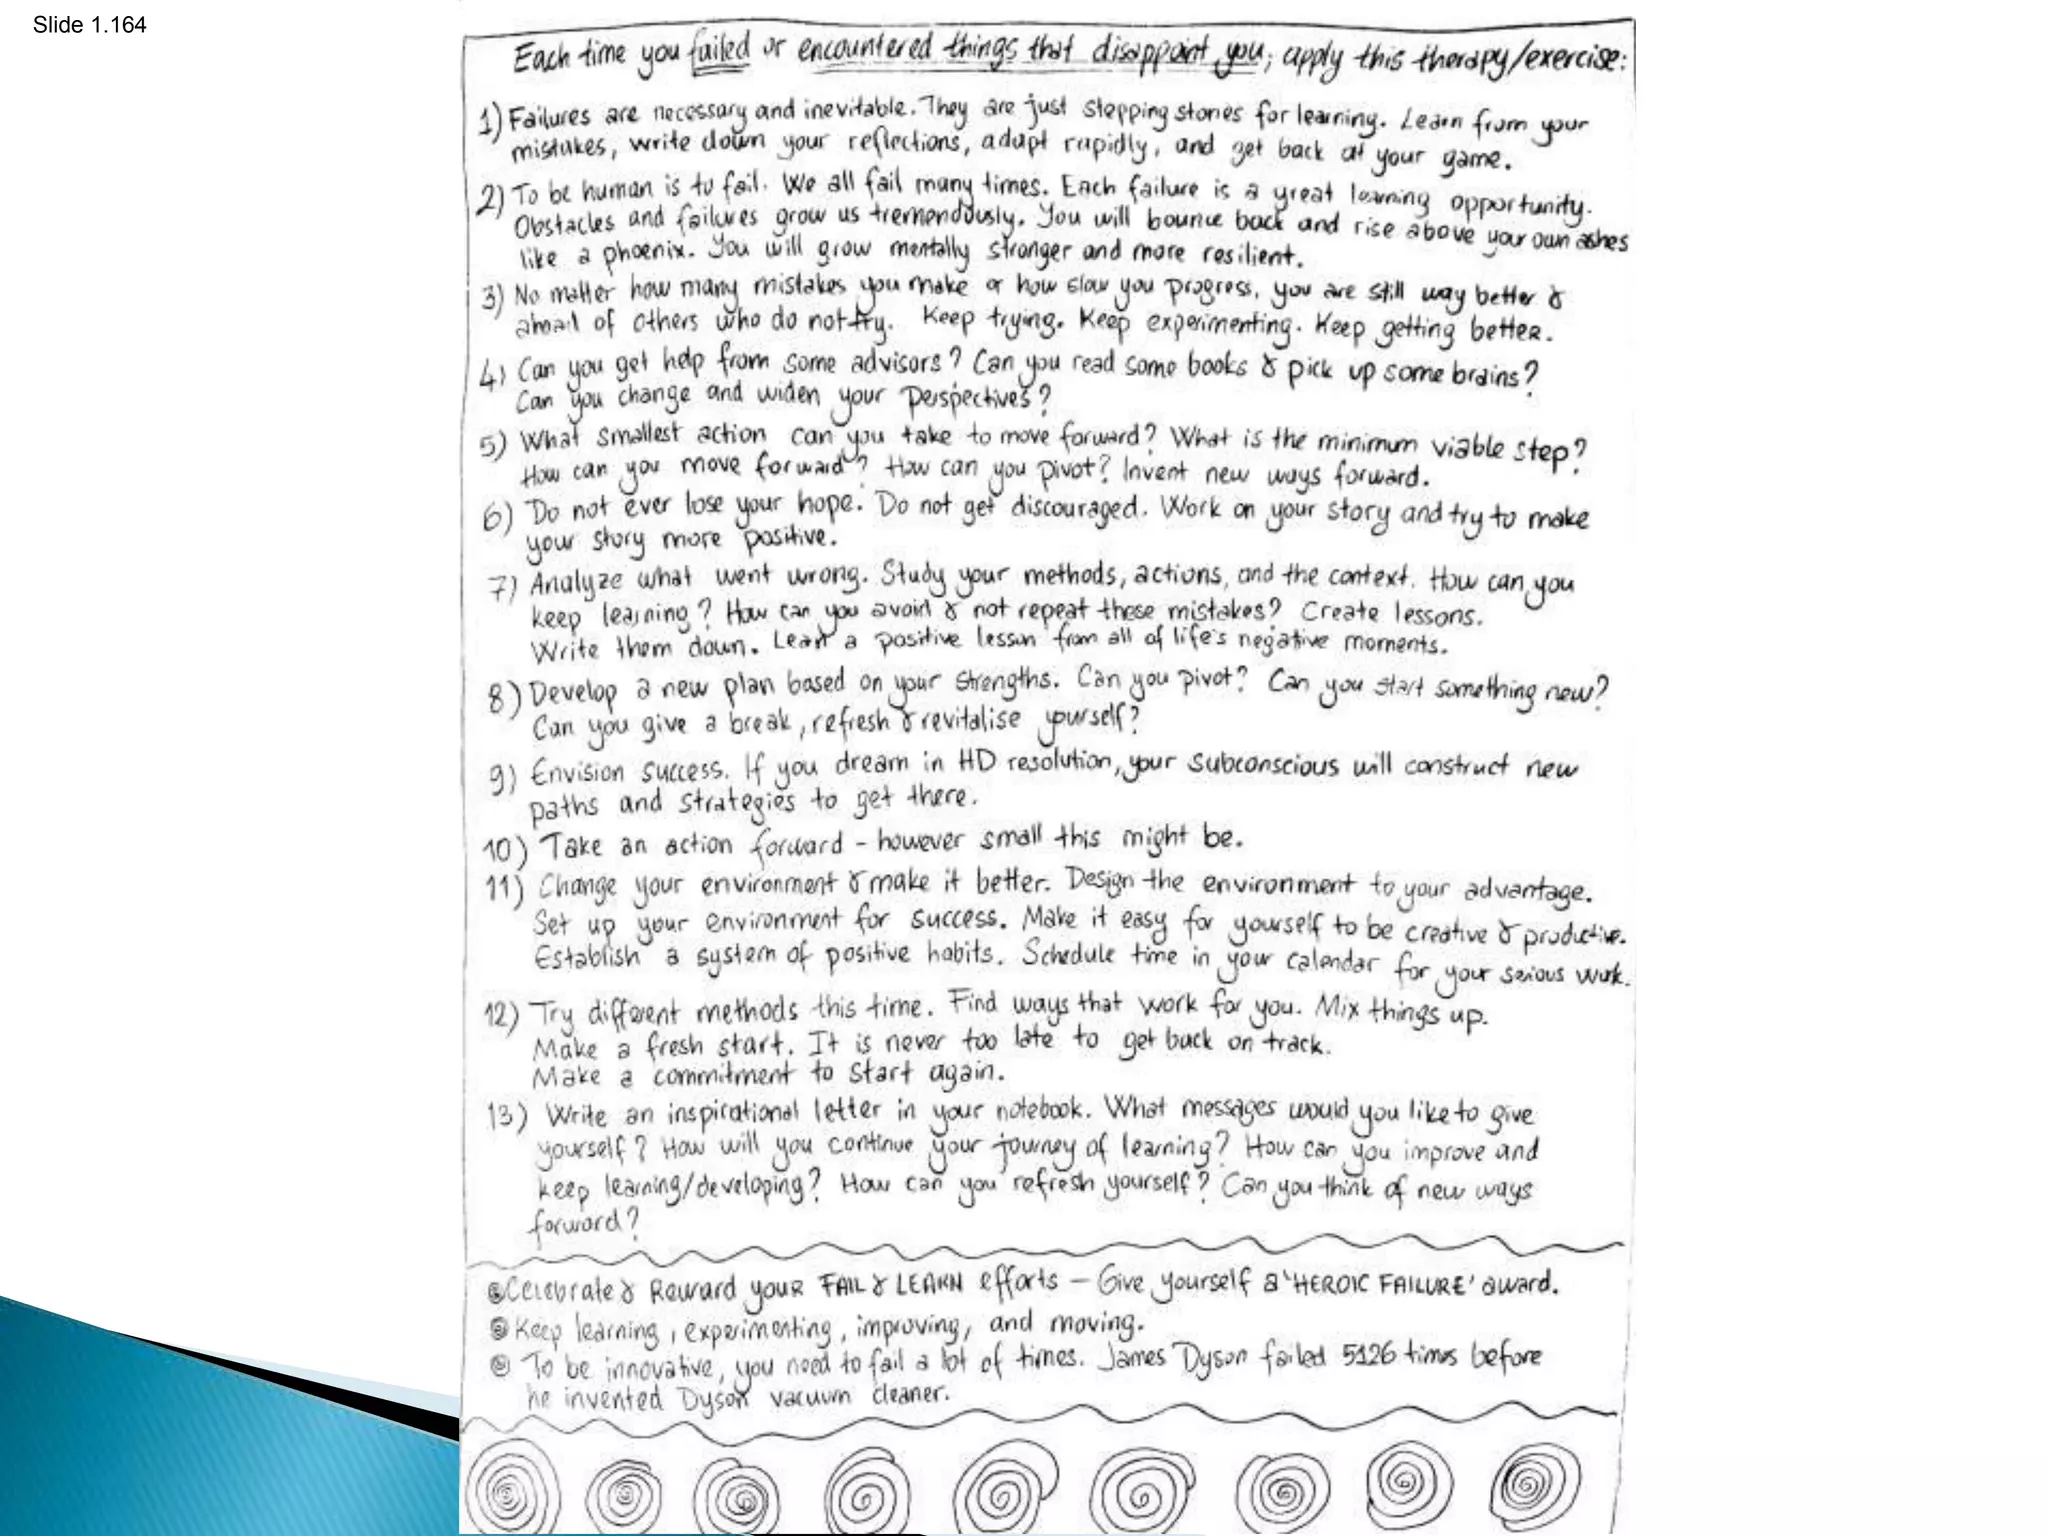 Slide 1.164
Each time you failed or encountered things that disappoint you, apply this therapy/exercise:
1) Failures are necessary and inevitable. They are just stepping stones for learning. Learn from your
mistakes, write down your reflections, adapt rapidly, and get back at your game.
2) To be human is to fail. We all fail many times. Each failure is a great learning opportunity.
Obstacles and failures grow us tremendously. You will bounce back and rise above your own ashes
like a phoenix. You will grow mentally stronger and more resilient.
3) No matter how many mistakes you make or how slow you progress, you are still way better &
ahead of others who do not try. Keep trying. Keep experimenting. Keep getting better.
4) Can you get help from some advisors? Can you read some books & pick up some brains?
Can you change and widen your perspectives?
5) What smallest action can you take to move forward? What is the minimum viable step?
How can you move forward? How can you pivot? Invent new ways forward.
6) Do not ever lose your hope. Do not get discouraged. Work on your story and try to make
your story more positive.
7) Analyze what went wrong. Study your methods, actions, and the context. How can you
keep learning? How can you avoid & not repeat these mistakes? Create lessons.
Write them down. Learn a positive lesson from all of life's negative moments.
8) Develop a new plan based on your strengths. Can you pivot? Can you start something new?
Can you give a break, refresh & revitalise yourself?
9) Envision success. If you dream in HD resolution, your subconscious will construct new
paths and strategies to get there.
10) Take an action forward - however small this might be.
11) Change your environment & make it better. Design the environment to your advantage.
Set up your environment for success. Make it easy for yourself to be creative & productive.
Establish a system of positive habits. Schedule time in your calendar for your serious work.
12) Try different methods this time. Find ways that work for you. Mix things up.
Make a fresh start. It is never too late to get back on track.
Make a commitment to start again.
13) Write an inspirational letter in your notebook. What messages would you like to give
yourself? How will you continue your journey of learning? How can you improve and
keep learning/developing? How can you refresh yourself? Can you think of new ways
forward?
Celebrate & Reward your FAIL & LEARN efforts - Give yourself a 'HEROIC FAILURE' award.
Keep learning, experimenting, improving, and moving.
To be innovative, you need to fail a lot of times. James Dyson failed 5126 times before
he invented Dyson vacuum cleaner.